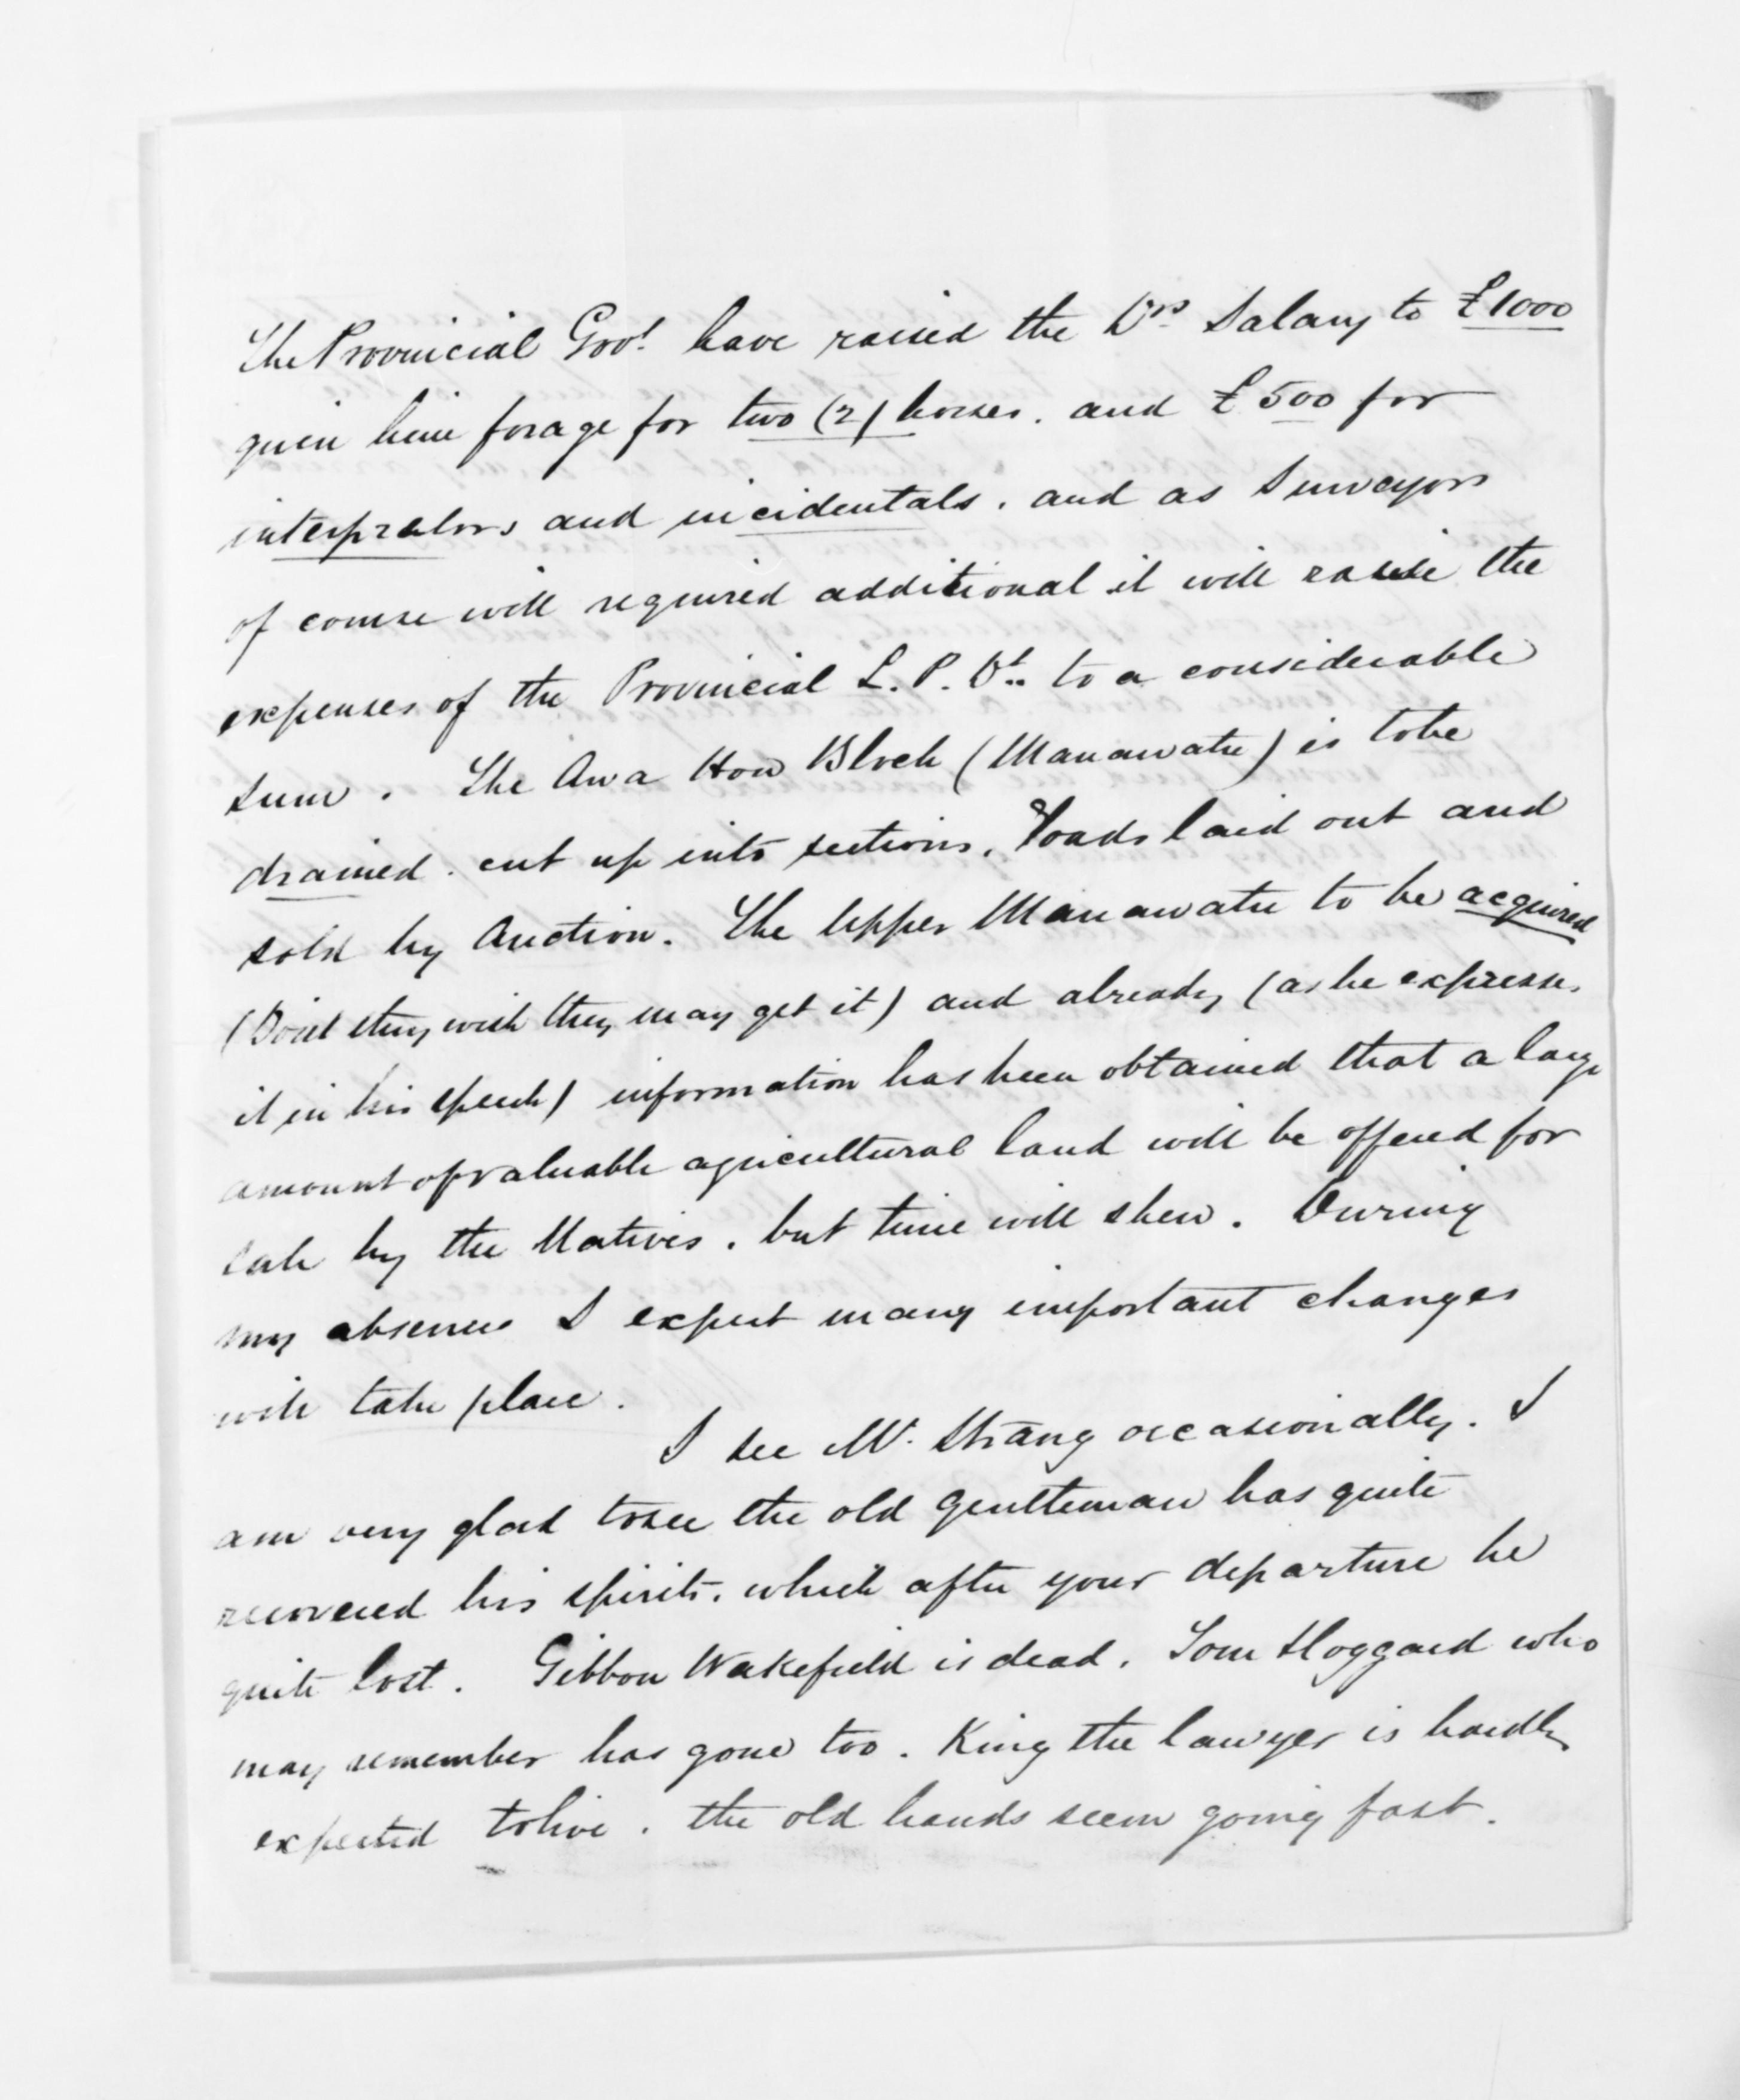 The Provincial Govt. have raised the Drs Salary to £1000
given him forage for two (2) horses. and £500 for
interpretors and incidentals. and as Surveyors
of course will required additional it will raise the
expenses of the Provincial L. P. Dt. to a considerable
sum. The Awa Hou Block (Manawatu) is to be
drained. cut up into sections, Roads laid out and
sold by Auction. The Upper Manawatu to be acquired
(Don't they wish they may get it) and already (as he expresses
it in his speech) information has been obtained that a large
amount of valuable agricultural land will be offered for
sale by the Natives. but time will shew. During
my absence I expect many important changes
will take place.
I see Mr. Strang occasionally. I
am very glad to see the old Gentleman has quite
recovered his spirits. which after your departure he
quite lost. Gibbon Wakefield is dead. Tom Hoggard who
may remember has gone too. King the lawyer is hardly
expected to live. the old hands seem going fast.